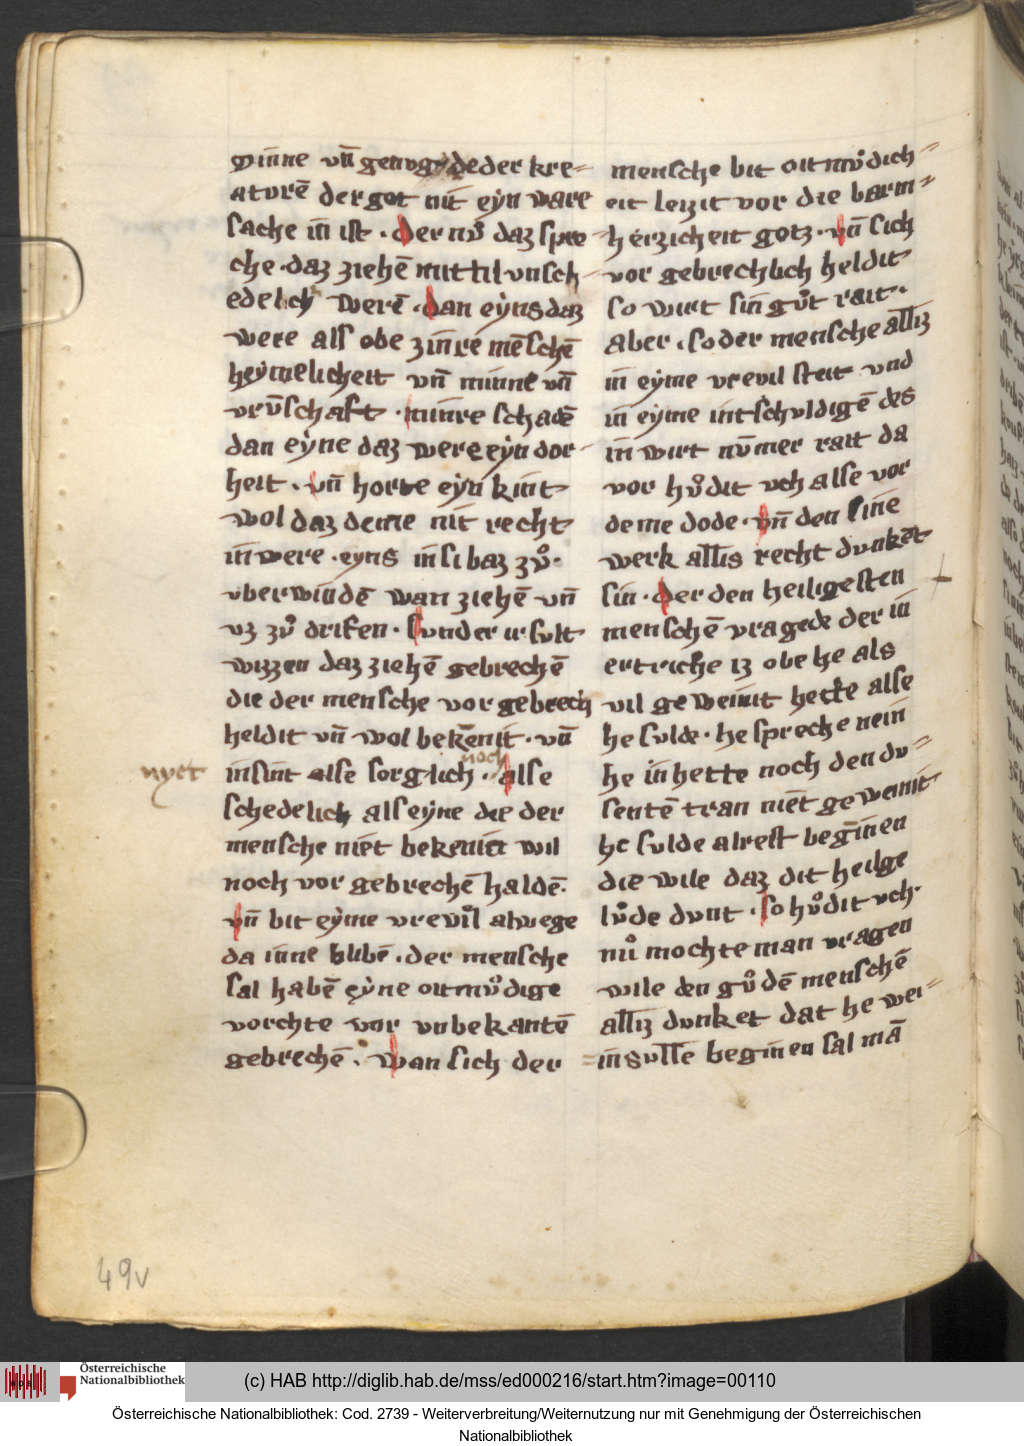 minne vn̄ genugede der kre⸗
aturē der got nit eẏn ware
sache in ist · der nuͦ daz spre⸗
che · daz ziehē mittil vnsch⸗
edelich werē · dan eẏns daz
were als obe zinre mēschē
heẏmelicheit vn̄ minne vn̄
vrūschaft · minre schadē
dan eẏne daz were eẏn dor⸗
heit · vn̄ horte eẏn kint
wol daz deme nit recht
inwere · eyns insi baz zuͦ·
vberwindē wan ziehē vn̄
vz zuͦ drifen · sunder ir sult
wizzen daz ziehē gebrechē
die der mensche vor gebrech
heldit vn̄ wol bekēnit · vn̄
noch
nyet
insint alse sorglich · alse
schedelich als eẏne die der
mensche niet bekennit wil
noch vor gebrechē haldē·
vn̄ bit eẏme vrevil alwege
da inne blibē · der mensche
sal habē eẏne oitmuͦdige
vorchte vor vnbekantē
gebrechē · wan sich der
mensche bit oitmuͦdich⸗
eit leizit vor die barm⸗
herzicheit gotz · vn̄ sich
vor gebrechlich heldit
so wirt sin guͦt rait·
aber · so der mensche alliz
in eẏme vrevil steit vnd
in eẏme intschuldigē des
in wirt nūmer rait da
vor huͦdit vch alse vor
deme dode · vn̄ den sine
werk allis recht dunkēt
sin · der den heiligesten
menschē vragede der in
ertriche iz obe he als
vil geweinit hette alse
he sulde · he spreche nein
he in hette noch den du⸗
sentē tran niet geweinit
he sulde alrest begīnen
die wile daz dit heilge
luͦde dunt · so huͦdit vch·
nuͦ mochte man vragen
wile den guͦdē menschē
alliz dunket dat he wei⸗
insulle beginen sal mā
49v
Österreichische
Nationalbibliothek
(c) HAB http://diglib.hab.de/mss/ed000216/start.htm?image=00110
Österreichische Nationalbibliothek: Cod. 2739 - Weiterverbreitung/Weiternutzung nur mit Genehmigung der Österreichischen
Nationalbibliothek